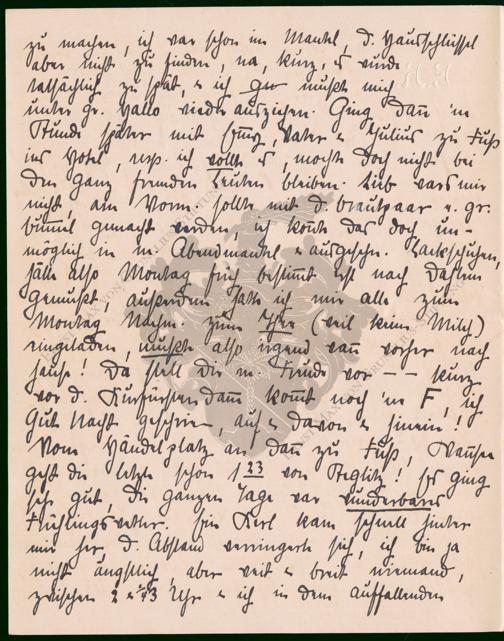 zu machen, ich war schon im Mantel, d. Hausschlüssel
aber nicht zu finden, na, kurz, es wurde
tatsächlich zu spät, & ich mußte mich
unter gr. Hallo wieder ausziehen. Ging dann 'ne
Stunde später mit Vater & Julius zu Fuß
ins Hotel, resp. ich wollte es, mochte doch nicht bei
den ganz fremden Leuten bleiben. Lieb wars mir
nicht, am Vorm. sollte mit d. Brautpaar e. gr.
bummel gemacht werden, ich konnte das doch un-
möglich in m. Abendmantel & ausgeschn. Lackschuhen,
hätte also Montag früh bestimmt erst nach Dahlem
gemußt, außerdem hatte ich mir alle zum
Montag Nachm. zum Thee (weil keine Milch)
eingeladen, mußte also irgend wann vorher nach
hause! Da stell dir m. Freude vor – – kurz
vor d. Kurfürstendamm kommt noch 'ne F, ich
Gut Nacht geschrien, auf & davon & hinein!
Vom Händelplatz an dann zu Fuß, Wannsee
geht die letzte schon 1 23 von Steglitz! Es ging
sehr gut, die ganzen Tage war wunderbares
Frühlingswetter. Ein Kerl kam schnell hinter
mir her, d. Abstand verringerte sich, ich bin ja
nicht ängstlich, aber weit & breit niemand,
zwischen 2 & Uhr & ich in dem auffallenden